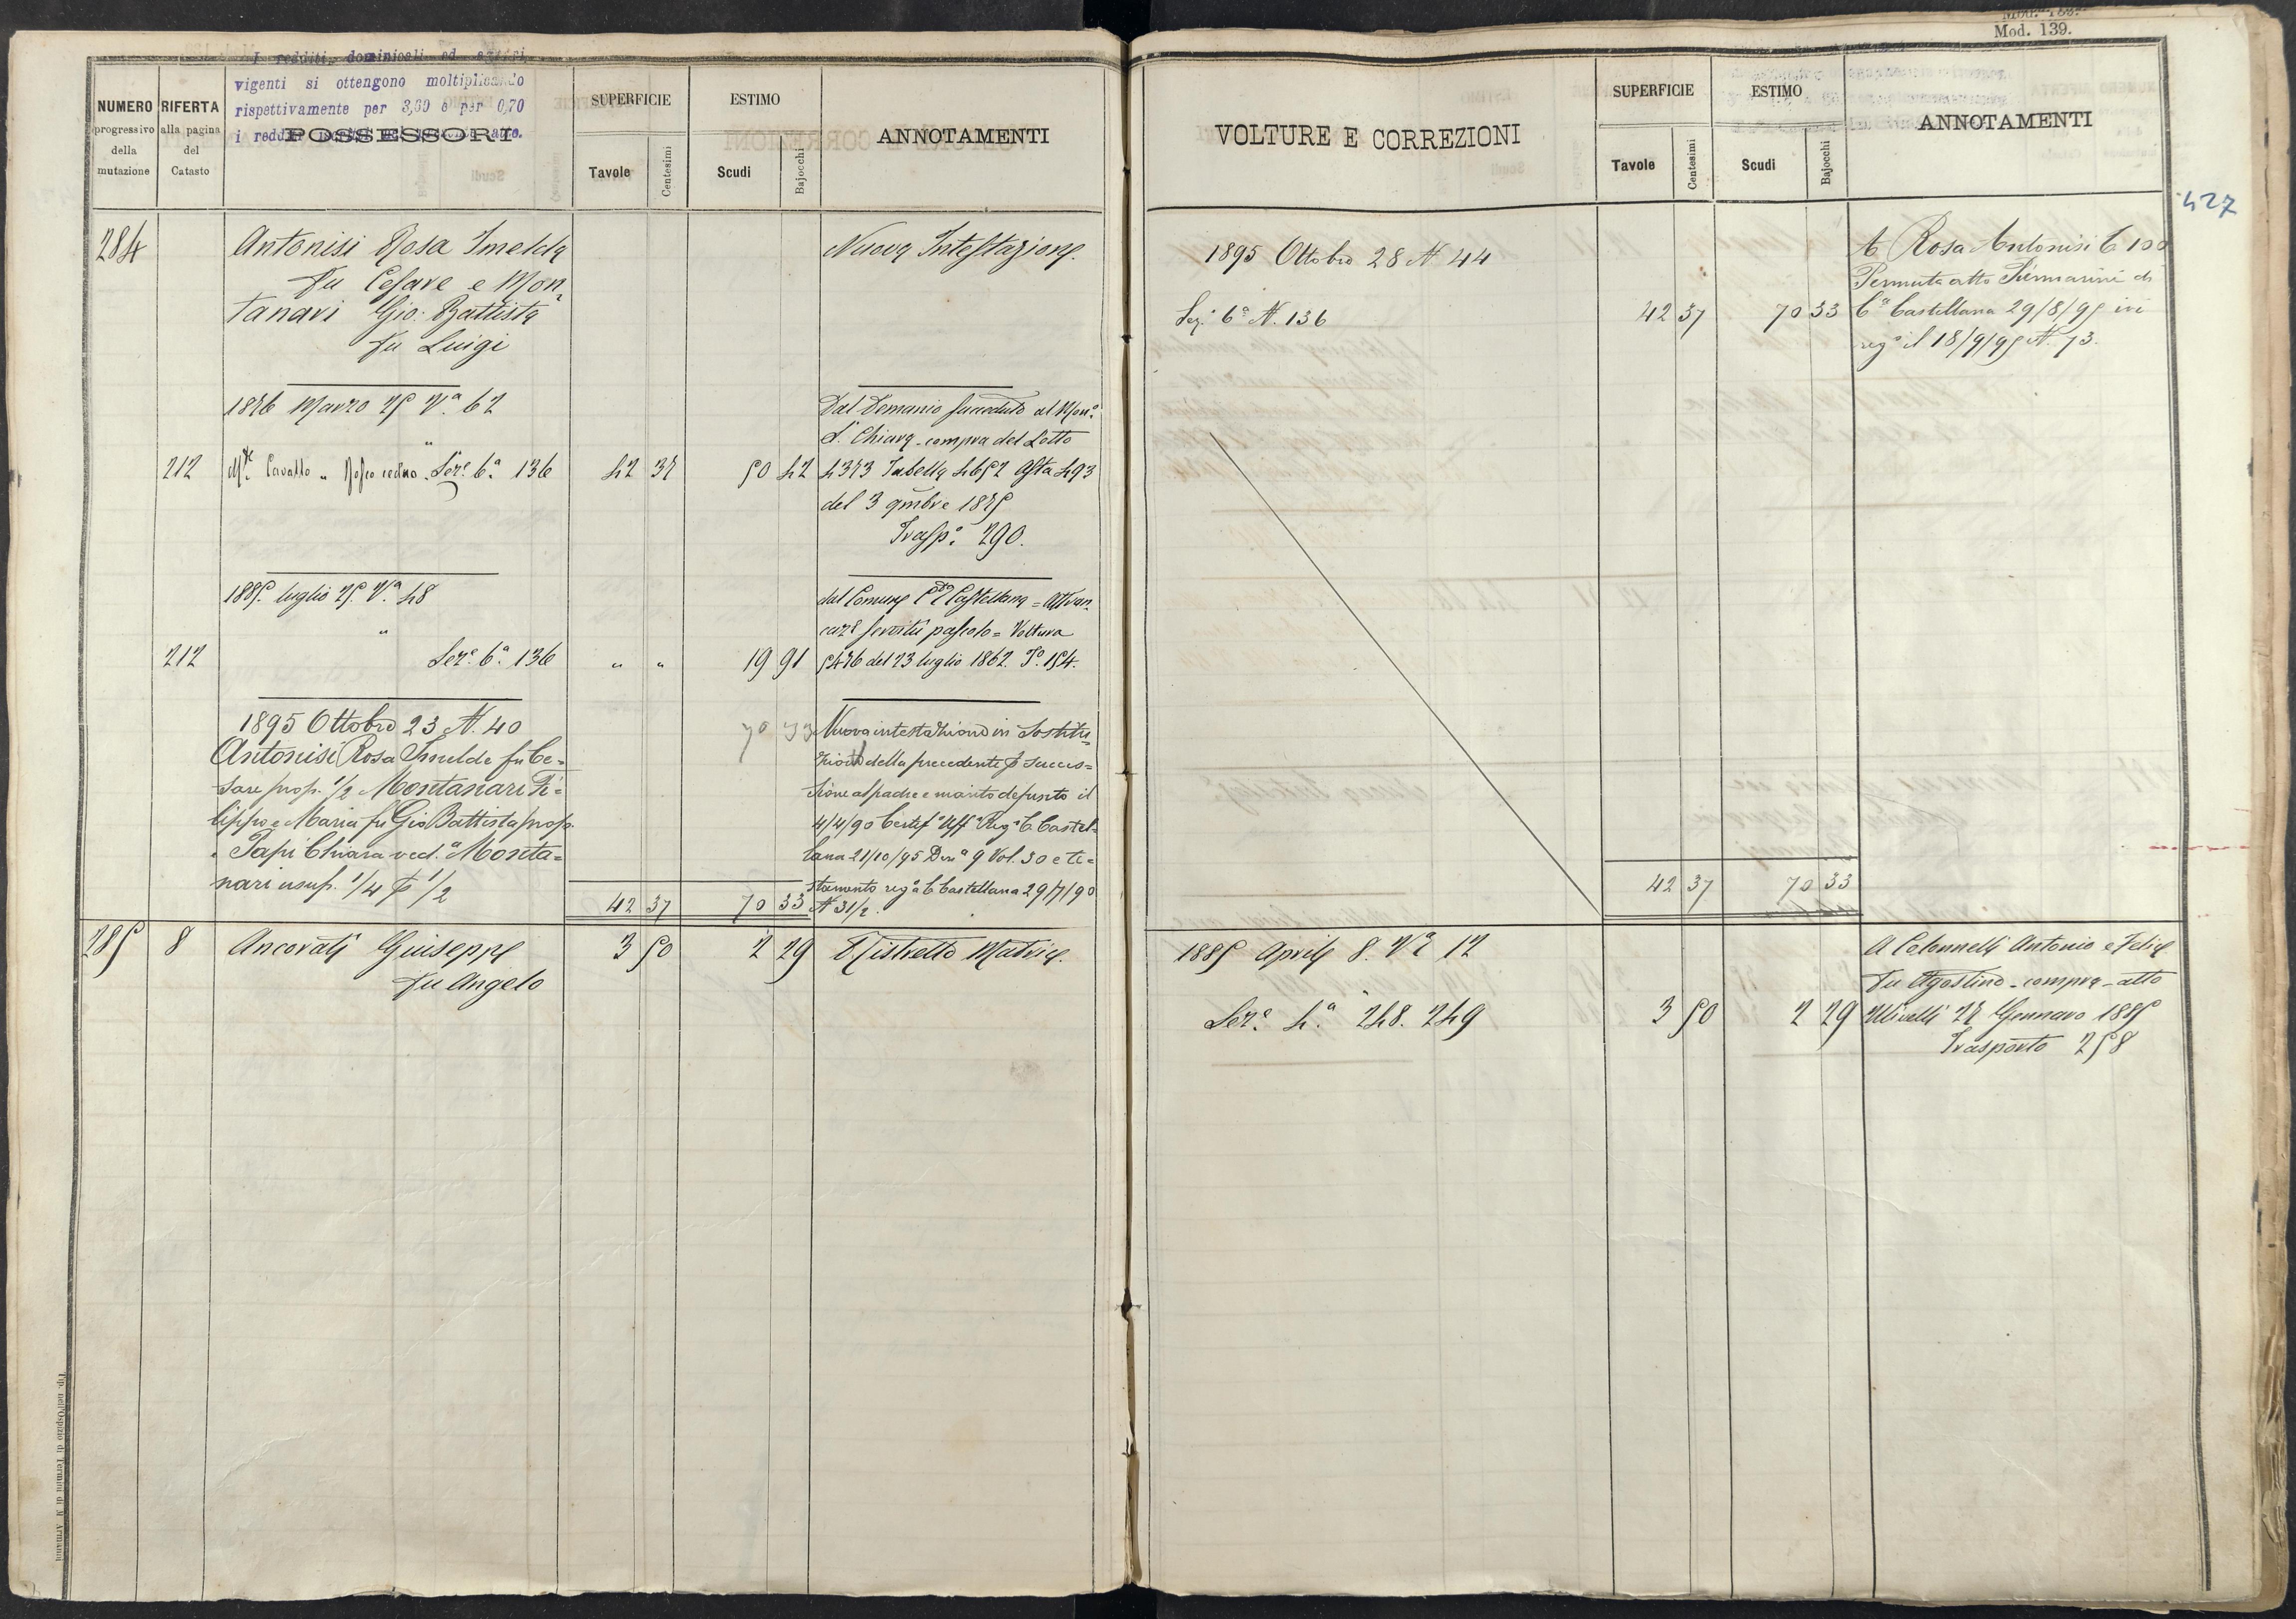 Mod. 139.
I redditi dominicali ed agrari
vigenti si ottengono moltiplicando
rispettivamente per 3,60 e per 0,70
NUMERO
progressivo
della
mutazione
RIFERTA
alla pagina
del
Catasto
POSSESSORI
SUPERFICIE
Tavole
Centesimi
ESTIMO
Scudi
Bajocchi
ANNOTAMENTI
284
Antonisi Rosa Imelda
fu Cesare e Mon
tanari Gio: Battista
fu Luigi
Nuova Intestazione.
1876 Marzo 25 N.a 62
212 M.te Cavallo " Bosco ceduo. Sez.e 6.a 136 42 37 50 42
Dal Demanio succeduto al Mon.o
S. Chiara - compra del Lotto
4373 Tabella 4652 Asta 493
del 3 9mbre 1875
Trasp.o 290.
1885. luglio 25. N.a 48
"
212 Sez.e 6.a 136 " " 19 91
dal Comune C.tà Castellana = Affran
caz.e servitù pascolo = Voltura
5476 del 23 luglio 1862. T.o 154.
1895 Ottobre 23 N. 40
Antonisi Rosa Imelde fu Ce=
sare prop. 1/2 Montanari Fi=
lippo e Maria fu Gio Battista prop.
Papi Chiara ved.a Monta=
nari usuf. 1/4 1/2
70 33
Nuova intestazione in sostitu=
zione della precedente p succes=
sione al padre e marito defunto il
4/4/90 Certif.o Uff.o Reg.o C. Castel=
lana 21/10/95 Den.a 9 Vol. 30 e te=
stamento reg.o a C. Castellana 29/7/90
N 31/2.
42 37 70 33
285 8 Ancorati Giuseppe
fu Angelo
3 50 2 29 Ristretto Matrice.
VOLTURE E CORREZIONI
SUPERFICIE
Tavole
Centesimi
ESTIMO
Scudi
Bajocchi
ANNOTAMENTI
427
1895 Ottobre 28 N 44
Sez.e 6a N. 136 42 37 70 33
A Rosa Antonisi C 100
Permuta atto di
C.a Castellana 29/8/95 ivi
reg.o il 18/9/95 N. 73.
42 37 70 33
1885 Aprile 8. N.a 12
Sez.e 4.a 248. 249 3 50 2 29
A Colonnelli Antonio e Felice
fu Agostino - compra - atto
Ulivelli 27 Gennaro 1885
Trasporto 258
Tip. nell'Ospizio di Termini di M. Armanni